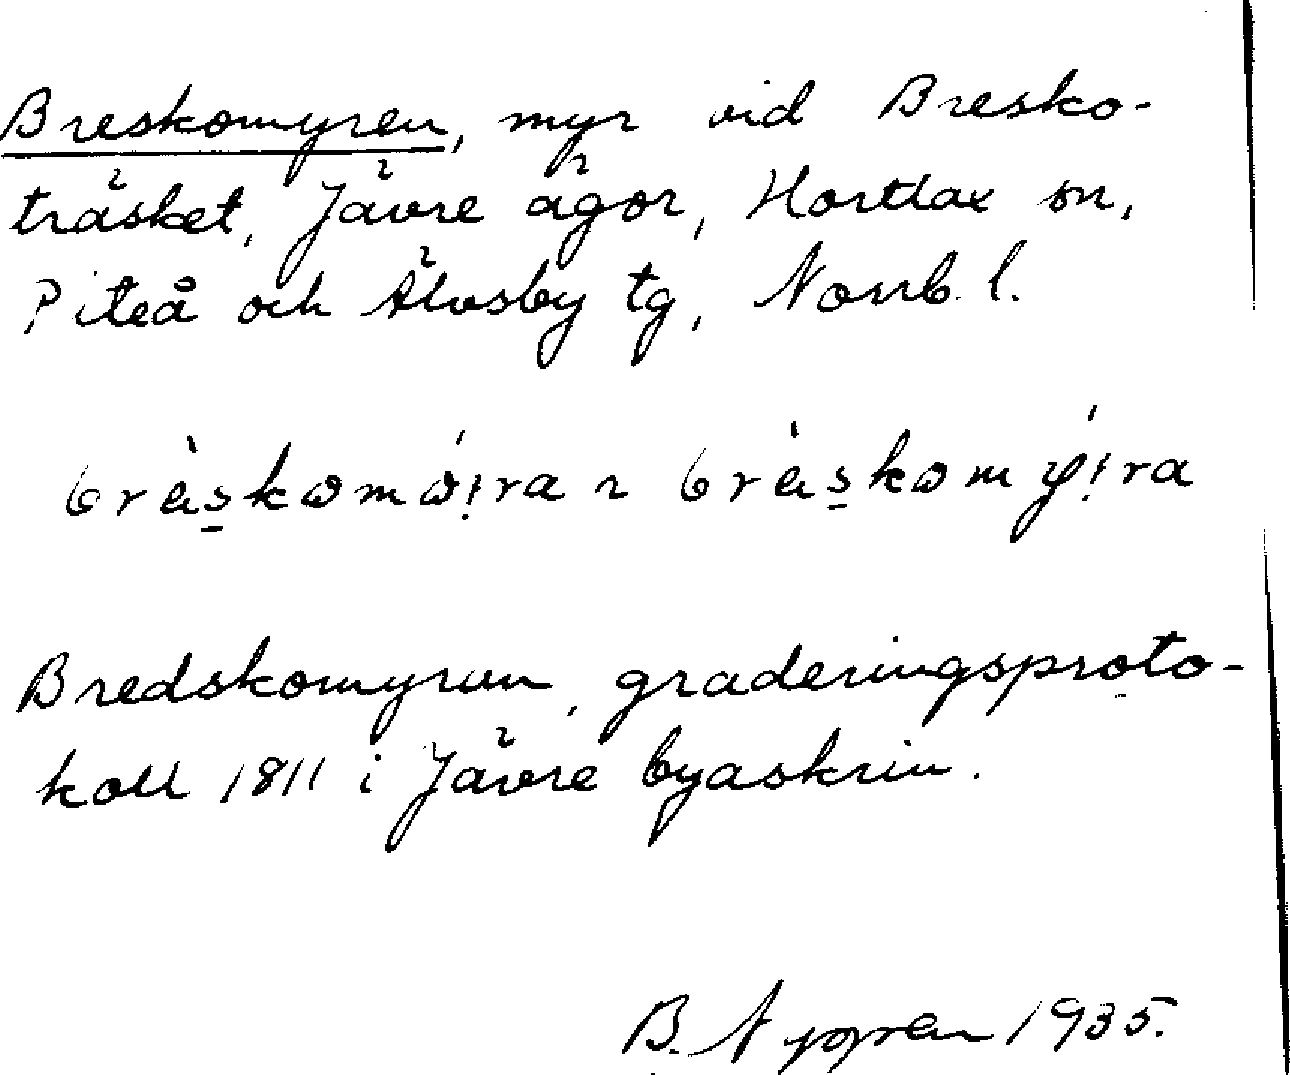 Breskomyren, myr vid Bresko-
träsket, Jävre ägor, Hortlax sn,
Piteå och Älvsby tg, Norrb. l.
brèskomó!ra ~ brèskomý!ra
Bredskomyran, graderingsproto-
koll 1811 i Jävre byaskrin.
B. 1935.